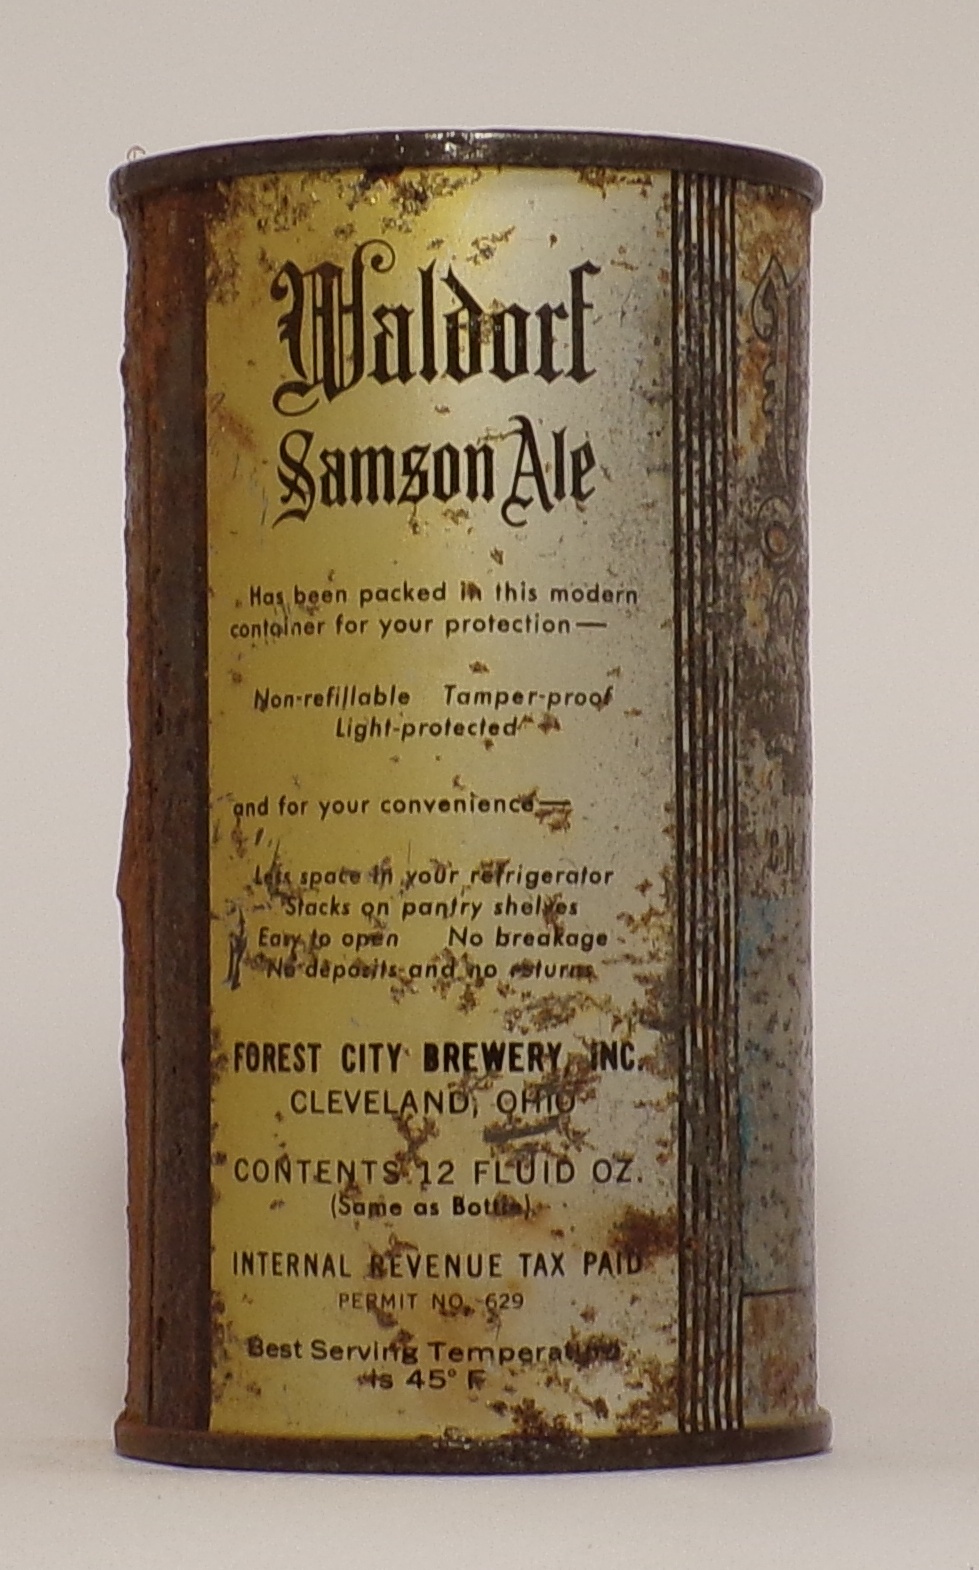 Waldorf
Samson Ale
Has been packed in this modern
container for your protection—
Non-refillable Tamper-proof
Light-protected
and for your convenience—
Less space in your refrigerator
Stacks on pantry shelves
Easy to open No breakage
No deposits and no returns
FOREST CITY BREWERY, INC.
CLEVELAND, OHIO
CONTENTS 12 FLUID OZ.
(Same as Bottle)
INTERNAL REVENUE TAX PAID
PERMIT NO. 629
Best Serving Temperature
Is 45° F